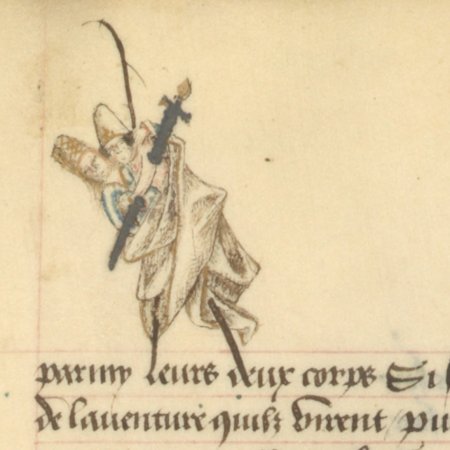 parmy leurs deux corps Si
de lauenture quilz virent pu